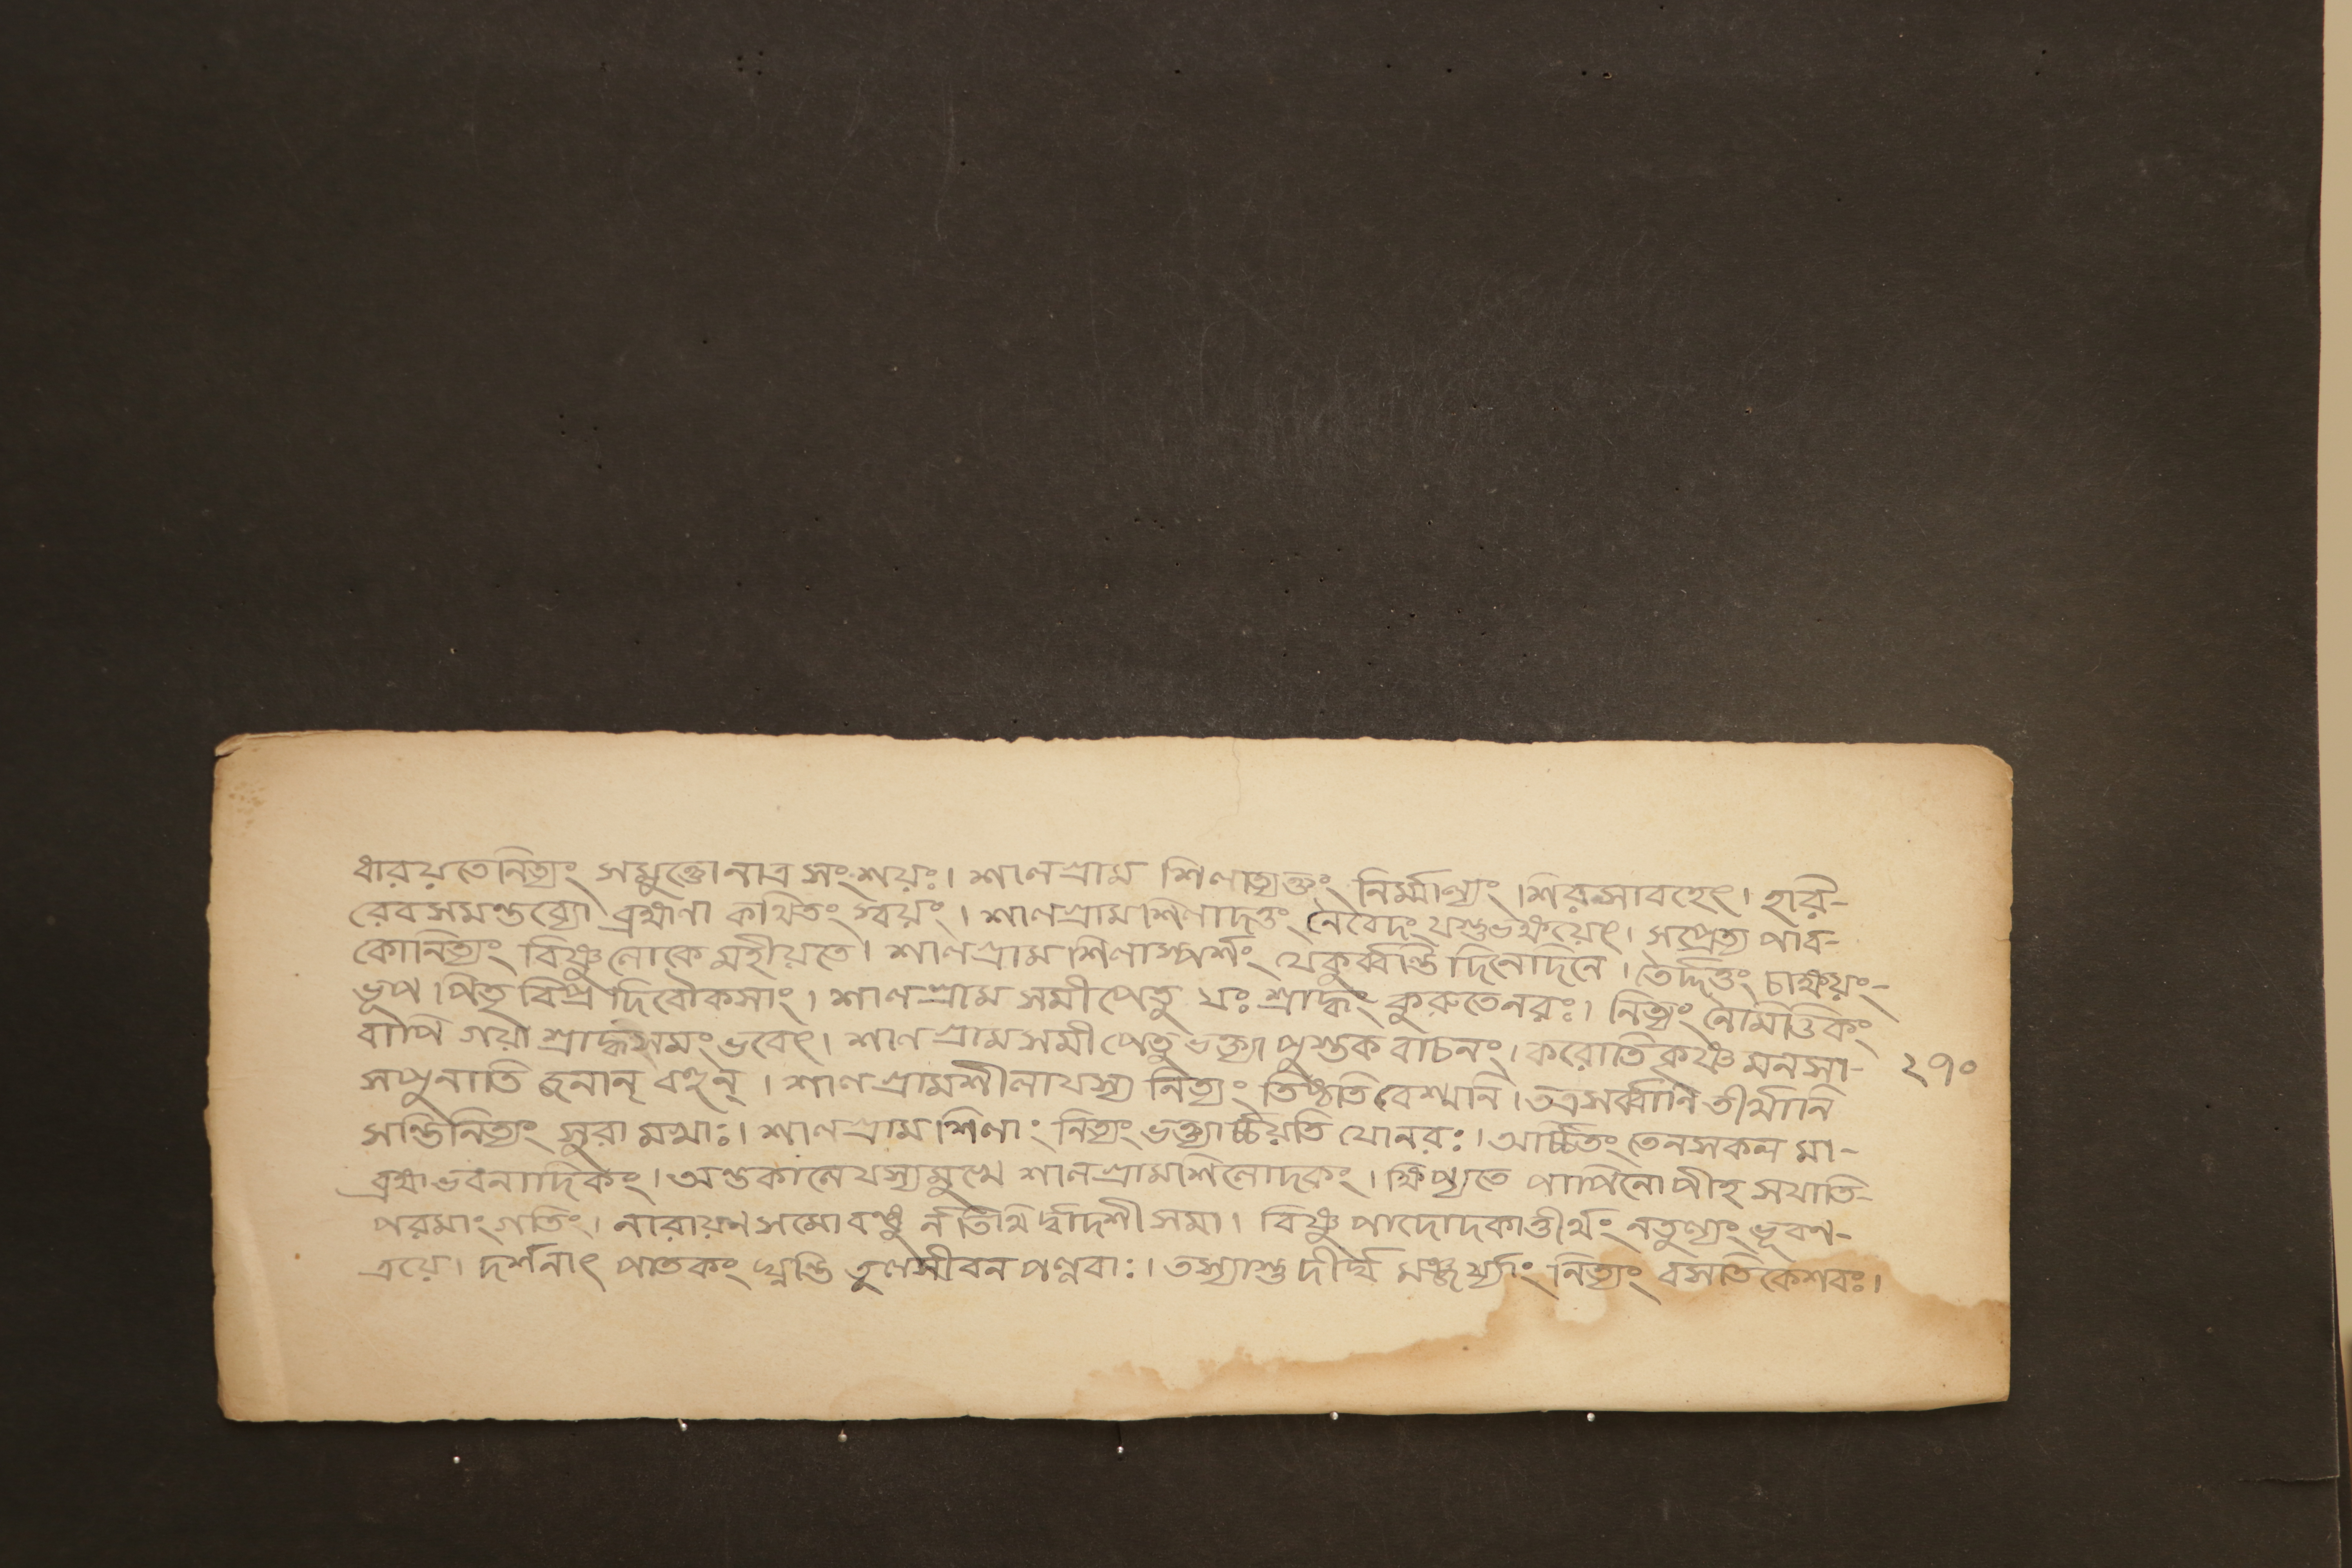 ধারয়তেনিত্যং সমুক্তোনাত্র সংশয়ঃ। শালগ্রাম শিলাত্যক্তং নির্ম্মাল্যং শিরসাবহেৎ। হরি-
রেবসমন্তব্যো ব্রহ্মণা কথিতং স্বয়ং। শালগ্রামশিলাদত্তং নৈবেদং যস্তুভক্ষয়েৎ। সপ্রেত্য পাব-
কোনিত্যং বিষ্ণুলোকে মহীয়তে। শালগ্রাম শিলাস্পর্শং যেকুর্ব্বন্তি দিনেদিনে। তৈর্দ্দত্তং চাক্ষয়ং-
ভূপ পিতৃ বিপ্র দিবৌকসাং। শালগ্রাম সমীপেতু যঃ শ্রাদ্ধং কুরুতেনরঃ। নিত্যং নৈমিত্তিকং
বাপি গয়া শ্রাদ্ধসমং ভবেৎ। শালগ্রামসমীপেতু ভক্ত্যা পুস্তক বাচনং। করোতি কৃষ্ণ মনসা-
সপুনাতি জনান্ বহূন্। শালগ্রামশীলাযস্য নিত্যং তিষ্ঠতি বেশ্মনি। তত্রসর্ব্বানি তীর্থানি
সন্তিনিত্যং সুরা মখাঃ। শালগ্রাম শিলাং নিত্যং ভক্ত্যার্চ্চয়তি যোনরঃ। অর্চ্চিতং তেনসকল মা-
ব্রহ্মভবনাদিকং। অন্তকালেযস্যমুখে শালগ্রামশিলোদকং। ক্ষিপ্যতে পাপিনোপীহ সযাতি-
পরমাংগতিং। নারায়ণসমোবন্ধু র্ন তিথি র্দ্বাদশীসমা। বিষ্ণু পাদোদকাত্তীর্থং নতুল্যং ভূবন-
ত্রয়ে। দর্শনাৎ পাতকং ঘ্নন্তি তুলসীবন পল্লবাঃ। তস্যাস্তু দীর্ঘ মঞ্জর্য্যাং নিত্যং বসতি কেশবঃ।
২৭০